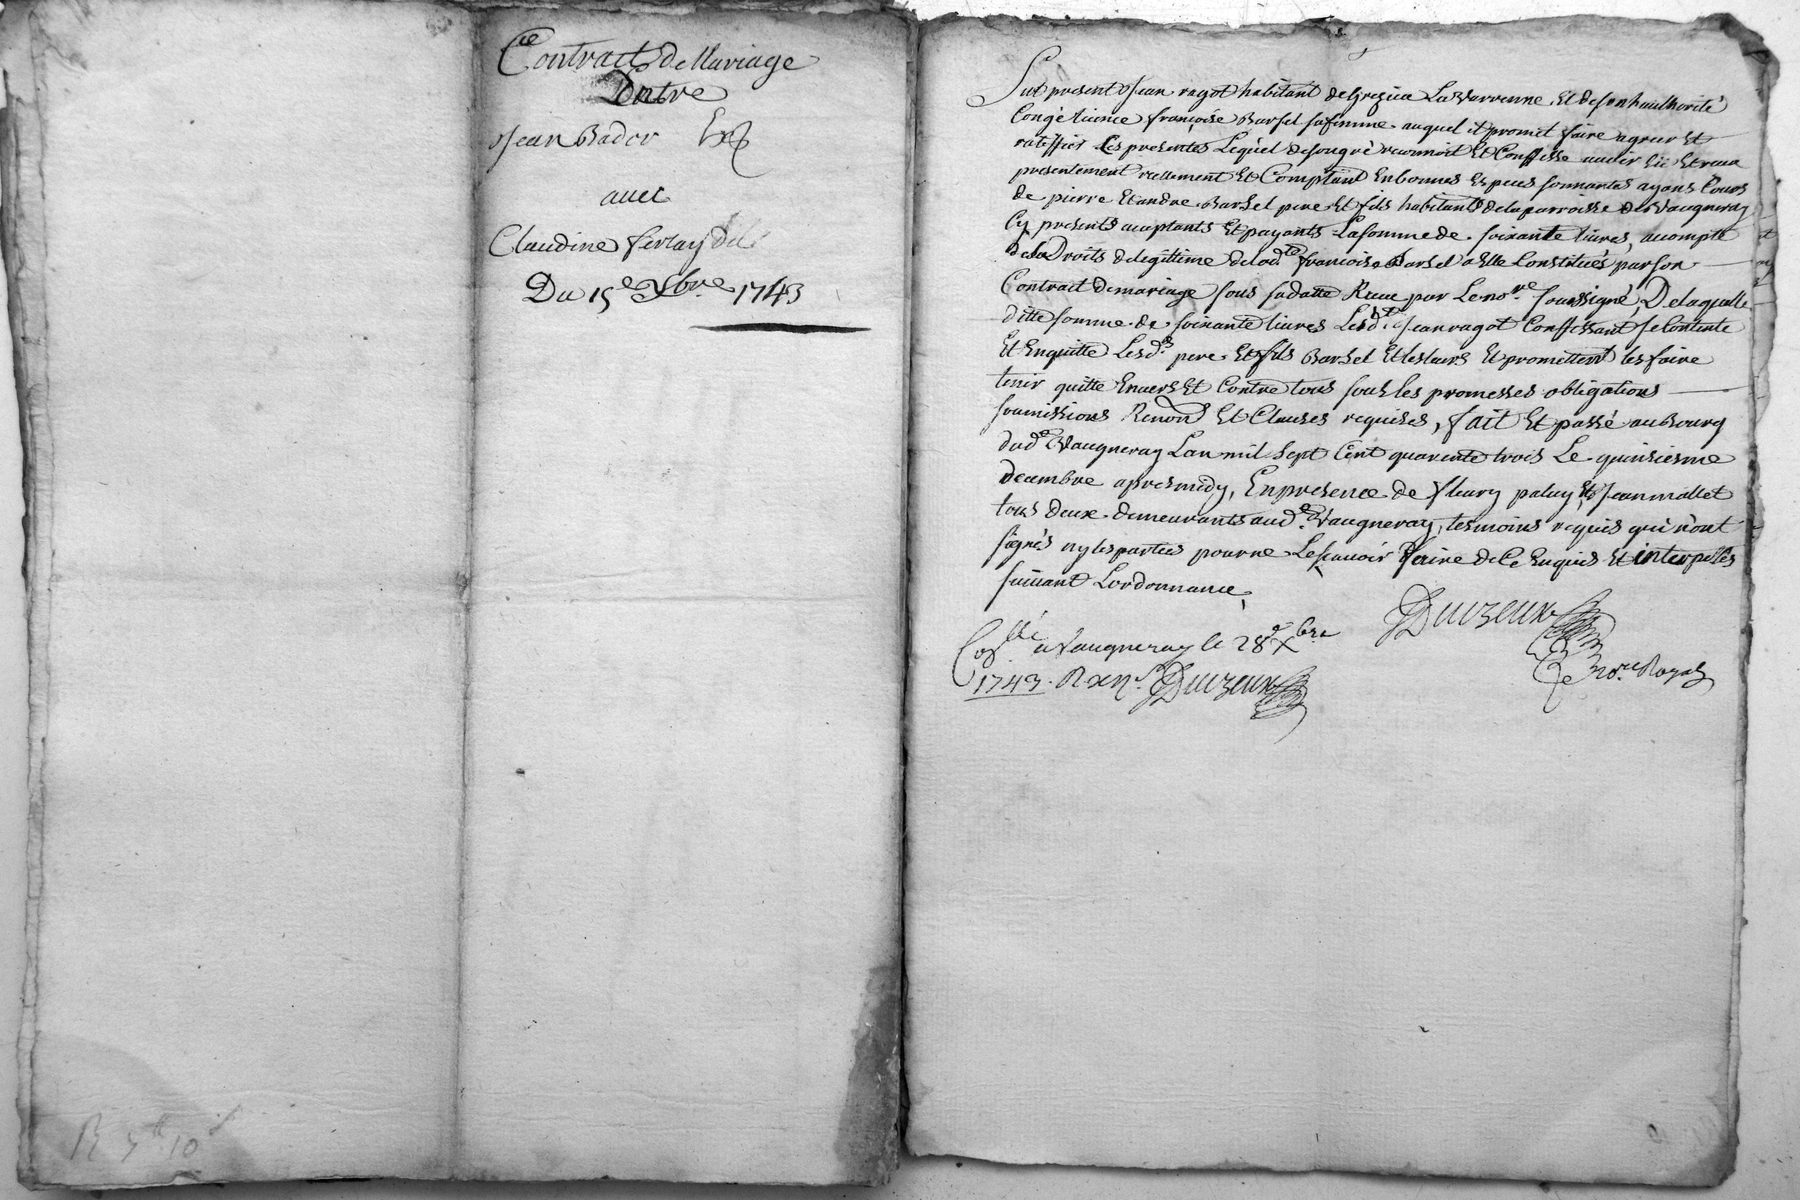 Contract de Mariage
Entre
Jean Bador
avec
Claudine ferlay
Du 15e Xbre 1743
R 5ll 10s
fut present Jean ragot habitant de Grezieu La Varenne, Et de son hauthorité
Congé licence françoise Barsel sa femme. auquel il promet faire agreer Et
rattiffier Les presentes Lequel de son gré reconnoit Et Confesse avoir Eü Et receu
presentement reellement Et Comptant En bonnes Especes sonnantes ayans Cours
de pierre Et andre Barsel pere Et fils habitants de la parroisse de Vaugneray
Cy presents acceptants Et payants La somme de soixante livres, acompte
des Droits de legittime de lad.te françoise Barsel a Elle Constitués par son
Contract de mariage sous sa datte Receu par Le no.re soussigné, De laquelle
ditte somme de soixante livres Led.t Jean ragot Confessant se Contente
Et Enquitte Lesd.s pere Et fils Barsel Et les leurs Et promettent les faire
tenir quitte Envers Et Contre tous sous les promesses obligations
soumissions Renon.s Et Clauses requises, fait Et passé au Bourg
dud.t Vaugneray Lan mil sept Cent quarente trois Le quinziesme
decembre apres midy, En presence de fleury paluy, Et Jean mollet
tous deux demeurants aud.t Vaugneray, tesmoins requis qui n'ont
signés ny les parties pour ne Le scavoir faire de Ce Enquis Et interpellés
suivant Lordonnance,
Duizeux
no.re Royal
Con.llé a Vaugneray le 28e Xbre
1743. R xii s. Duizeux